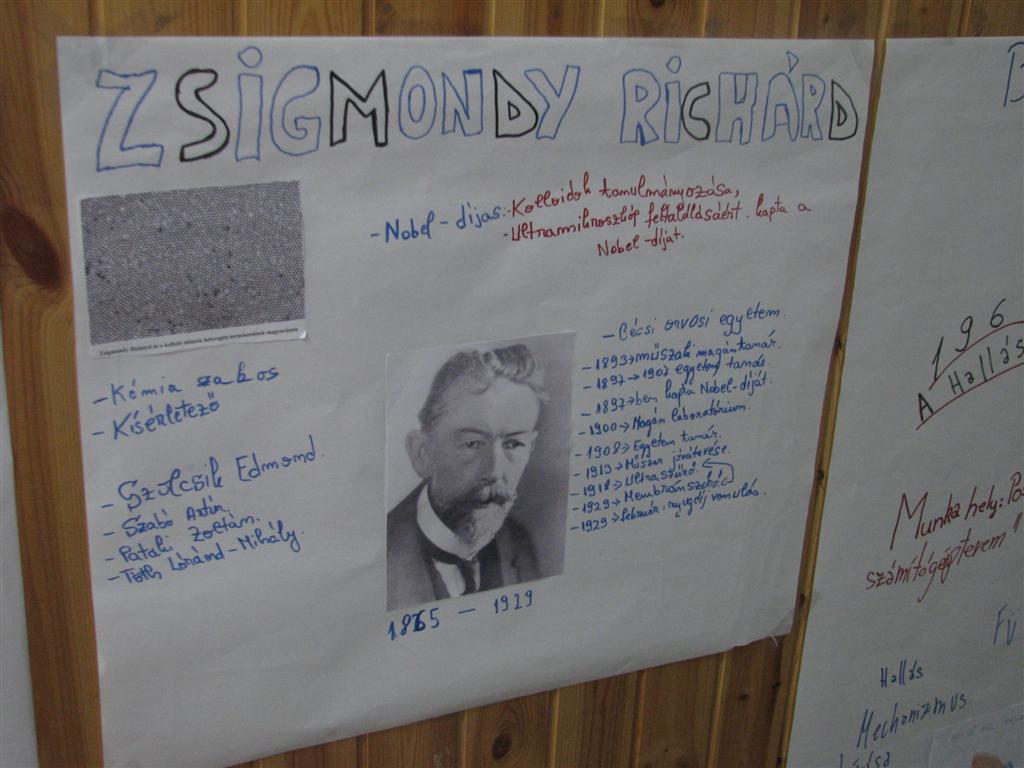 ZSIGMONDY RICHÁRD
-Nobel-díjas:-Kolloidok tanulmányozása,
-Ultramikroszkóp feltalálásáért. kapta a
Nobel-díjat.
Zsigmondy Richárd és a kolloid oldatok heterogén természetének magyarázata
- Kémia szakos
- Kísérletező
- Szolcsik Edmond.
- Szabó Antin
- Pataki Zoltán.
- Tóth Lóránd-Mihály.
- Bécsi orvosi egyetem.
- 1893→műszaki magántanár.
- 1897→1907 egyetemi tanár
- 1897→ben kapta Nobel-díját.
- 1900→Magán laboratórium.
- 1908→Egyetem tanár.
- 1913→Műszer
- 1918→Ultraszűrő.
- 1929→Membránszűrő.
- 1929→február, nyugdíj vonulás.
1865 — 1929
B
196
A Hallás
Munka hely: Pa
számítógépterem"
Fü
Hallás
Mechanizmus